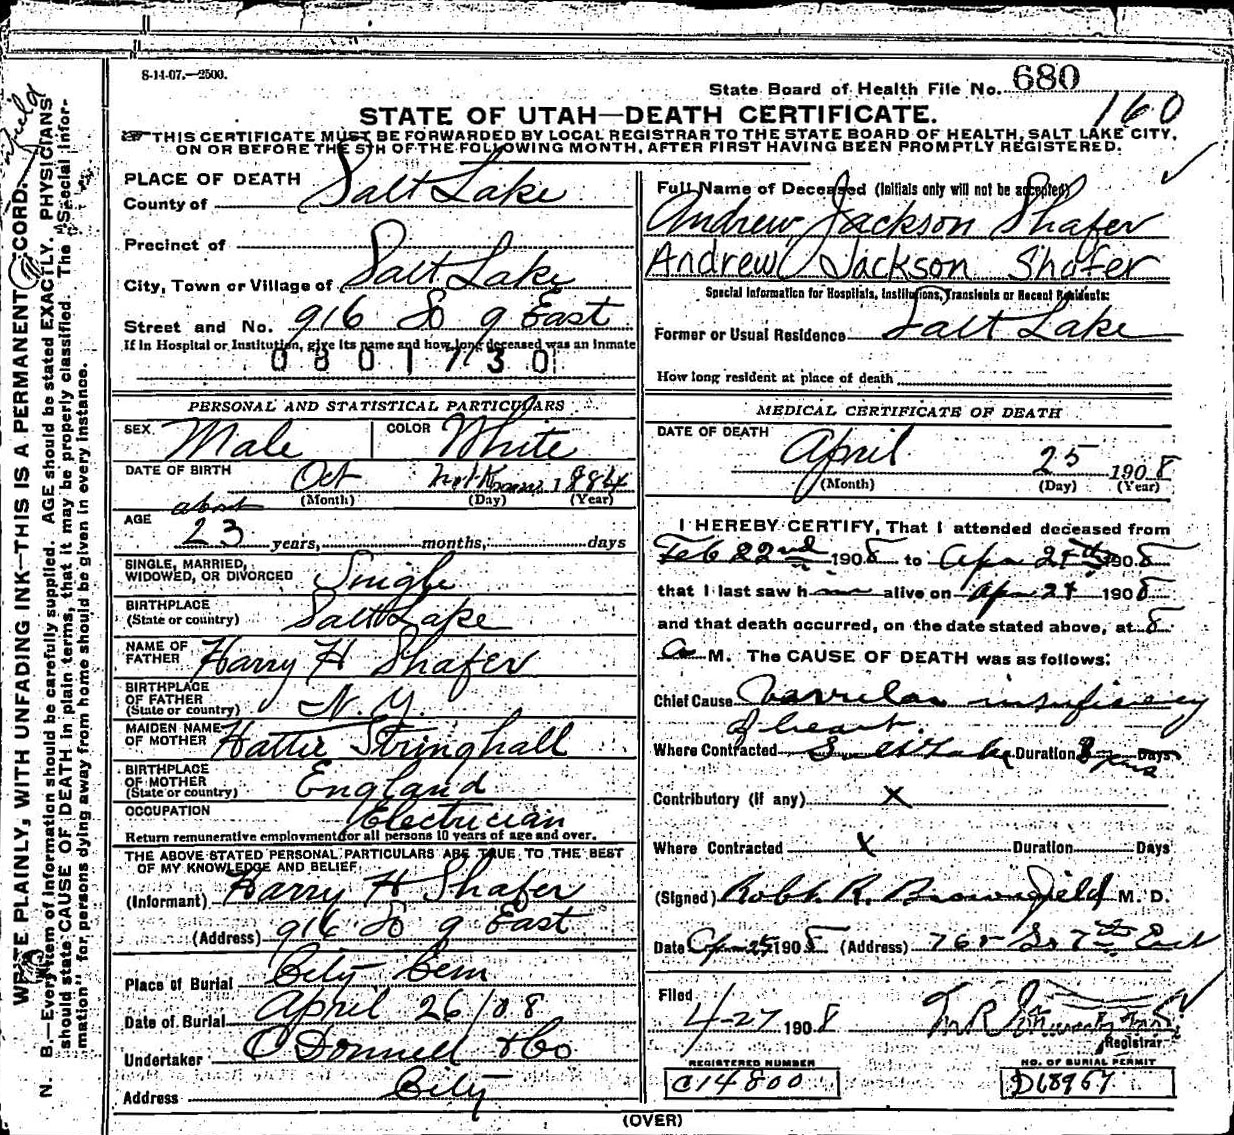 S-14-07.—2500.
State Board of Health File No. 680
160
STATE OF UTAH—DEATH CERTIFICATE.
THIS CERTIFICATE MUST BE FORWARDED BY LOCAL REGISTRAR TO THE STATE BOARD OF HEALTH, SALT LAKE CITY,
ON OR BEFORE THE 5TH OF THE FOLLOWING MONTH, AFTER FIRST HAVING BEEN PROMPTLY REGISTERED.
PLACE OF DEATH
County of Salt Lake
Precinct of
City, Town or Village of Salt Lake
Street and No. 916 So 9 East
If in Hospital or Institution, give its name and how long deceased was an inmate
0801730
PERSONAL AND STATISTICAL PARTICULARS
SEX Male COLOR White
DATE OF BIRTH Oct Not Known 1884
(Month) (Day) (Year)
AGE about
23 years, months, days
SINGLE, MARRIED,
WIDOWED, OR DIVORCED Single
BIRTHPLACE
(State or country) Salt Lake
NAME OF
FATHER Harry H Shafer
BIRTHPLACE
OF FATHER
(State or country) N. Y.
MAIDEN NAME
OF MOTHER Hattie Stringhall
BIRTHPLACE
OF MOTHER
(State or country) England
OCCUPATION Electrician
Return remunerative employment for all persons 10 years of age and over.
THE ABOVE STATED PERSONAL PARTICULARS ARE TRUE TO THE BEST
OF MY KNOWLEDGE AND BELIEF.
(Informant) Harry H Shafer
(Address) 916 So 9 East
Place of Burial City Cem
Date of Burial April 26/08
Undertaker O'Donnell & Co
Address City
Full Name of Deceased (Initials only will not be accepted)
Andrew Jackson Shafer
Andrew Jackson Shafer
Special Information for Hospitals, Institutions, Transients or Recent Residents:
Former or Usual Residence Salt Lake
How long resident at place of death
MEDICAL CERTIFICATE OF DEATH
DATE OF DEATH April 25 1908
(Month) (Day) (Year)
I HEREBY CERTIFY, That I attended deceased from
Feb 22nd 1908 to Apr 24th 1908
that I last saw him alive on Apr 24 1908
and that death occurred, on the date stated above, at 8
a M. The CAUSE OF DEATH was as follows:
Chief Cause insuficiency
of heart.
Where Contracted Salt Lake Duration 8 yrs Days
Contributory (if any) X
Where Contracted X Duration Days
(Signed) Robt. R. Brownfield M. D.
Date Apr 25 1908 (Address) 765 So 7th East
Filed
4-27 1908
Registrar
REGISTERED NUMBER
C14800
NO. OF BURIAL PERMIT
D68967
(OVER)
WRITE PLAINLY, WITH UNFADING INK—THIS IS A PERMANENT RECORD.
N. B.—Every item of information should be carefully supplied. AGE should be stated EXACTLY. PHYSICIANS
should state CAUSE OF DEATH in plain terms, that it may be properly classified. The "Special Infor-
mation" for persons dying away from home should be given in every instance.